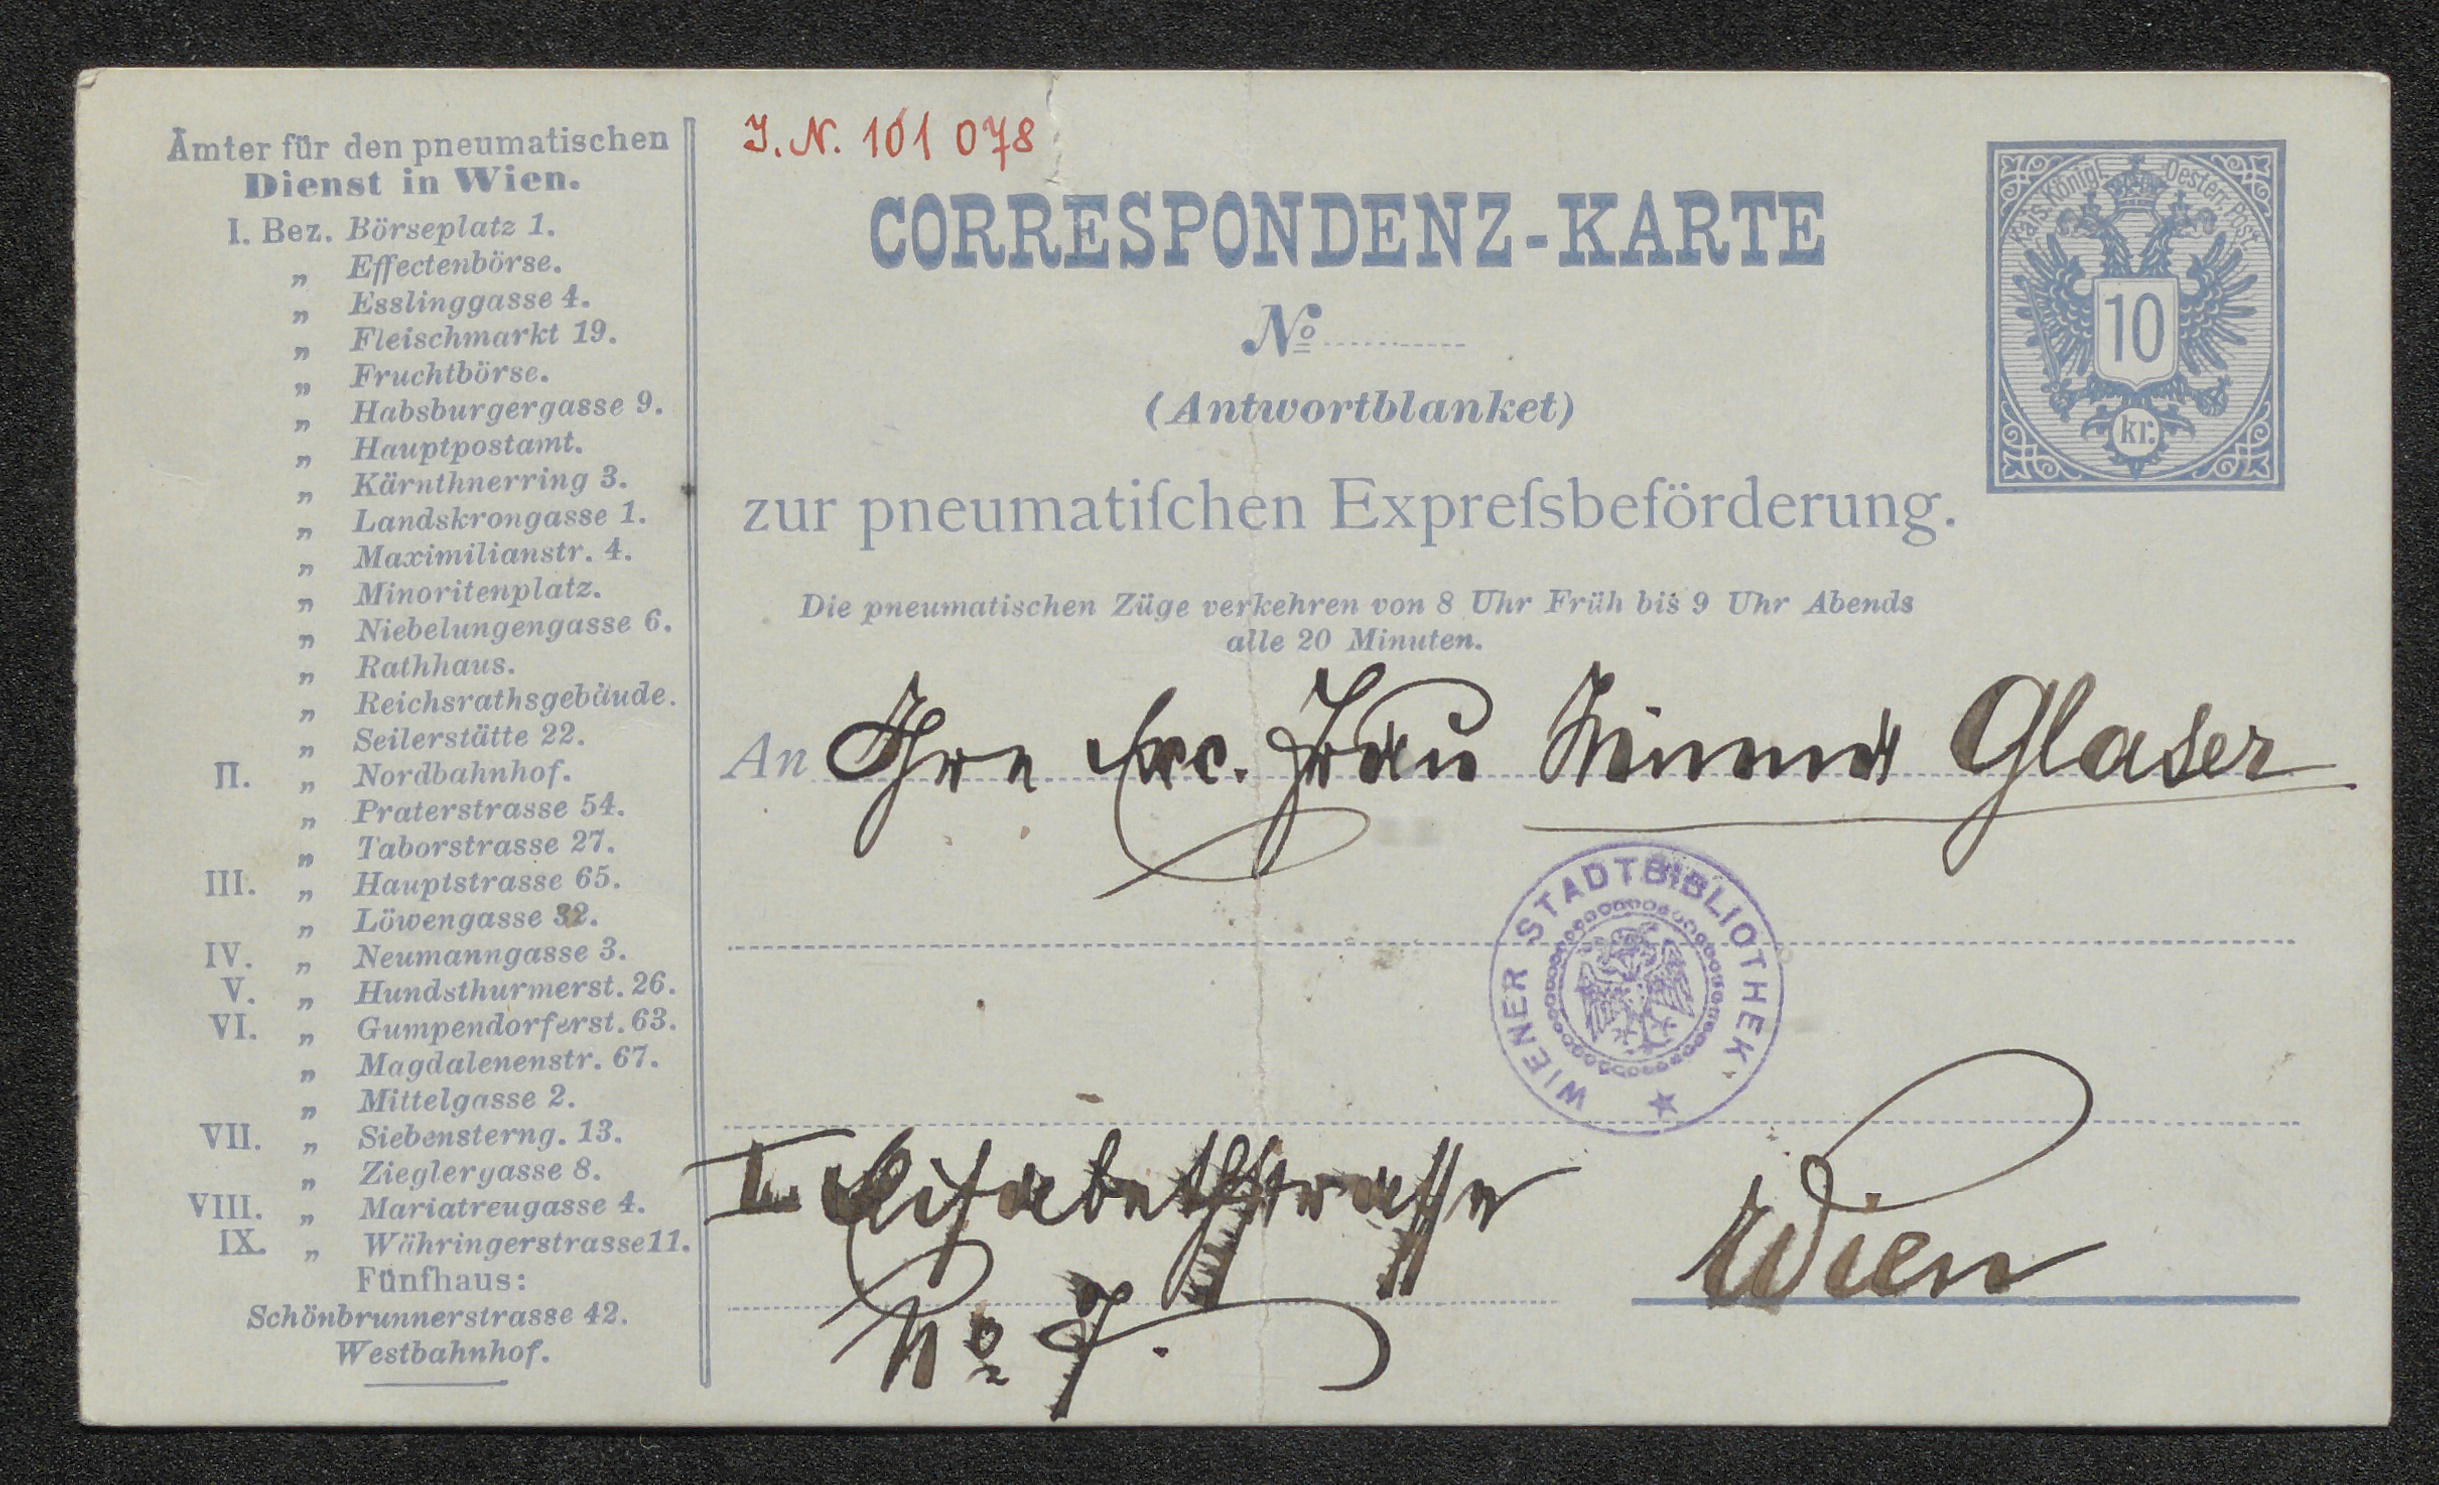 Ämter für den pneumatischen
Dienst in Wien.
I. Bez. Börseplatz 1.
„ Effectenbörse.
„ Esslinggasse 4.
„ Fleischmarkt 19.
„ Fruchtbörse.
„ Habsburgergasse 9.
„ Hauptpostamt.
„ Kärnthnerring 3.
„ Landskrongasse 1.
„ Maximilianstr. 4.
„ Minoritenplatz.
„ Niebelungengasse 6.
„ Rathhaus.
„ Reichsrathsgebäude.
„ Seilerstätte 22.
II. „ Nordbahnhof.
„ Praterstrasse 54.
„ Taborstrasse 27.
III. „ Hauptstrasse 65.
„ Löwengasse 32.
IV. „ Neumanngasse 3.
V. „ Hundsthurmerst. 26.
VI. „ Gumpendorferst. 63.
„ Magdalenenstr. 67.
„ Mittelgasse 2.
VII. „ Siebensterng. 13.
„ Zieglergasse 8.
VIII. „ Mariatreugasse 4.
IX. „ Währingerstrasse 11.
Fünfhaus:
Schönbrunnerstrasse 42.
Westbahnhof.
I. N. 101 078
CORRESPONDENZ-KARTE
No
(Antwortblanket)
zur pneumatiſchen Expreſsbeförderung.
Die pneumatischen Züge verkehren von 8 Uhr Früh bis 9 Uhr Abends
alle 20 Minuten.
Kais. Königl. Oesterr. Post
10
kr.
An Ihre Exc. Frau Minna Glaser
WIENER STADTBIBLIOTHEK
I Elisabethstrasse
No 7.
Wien